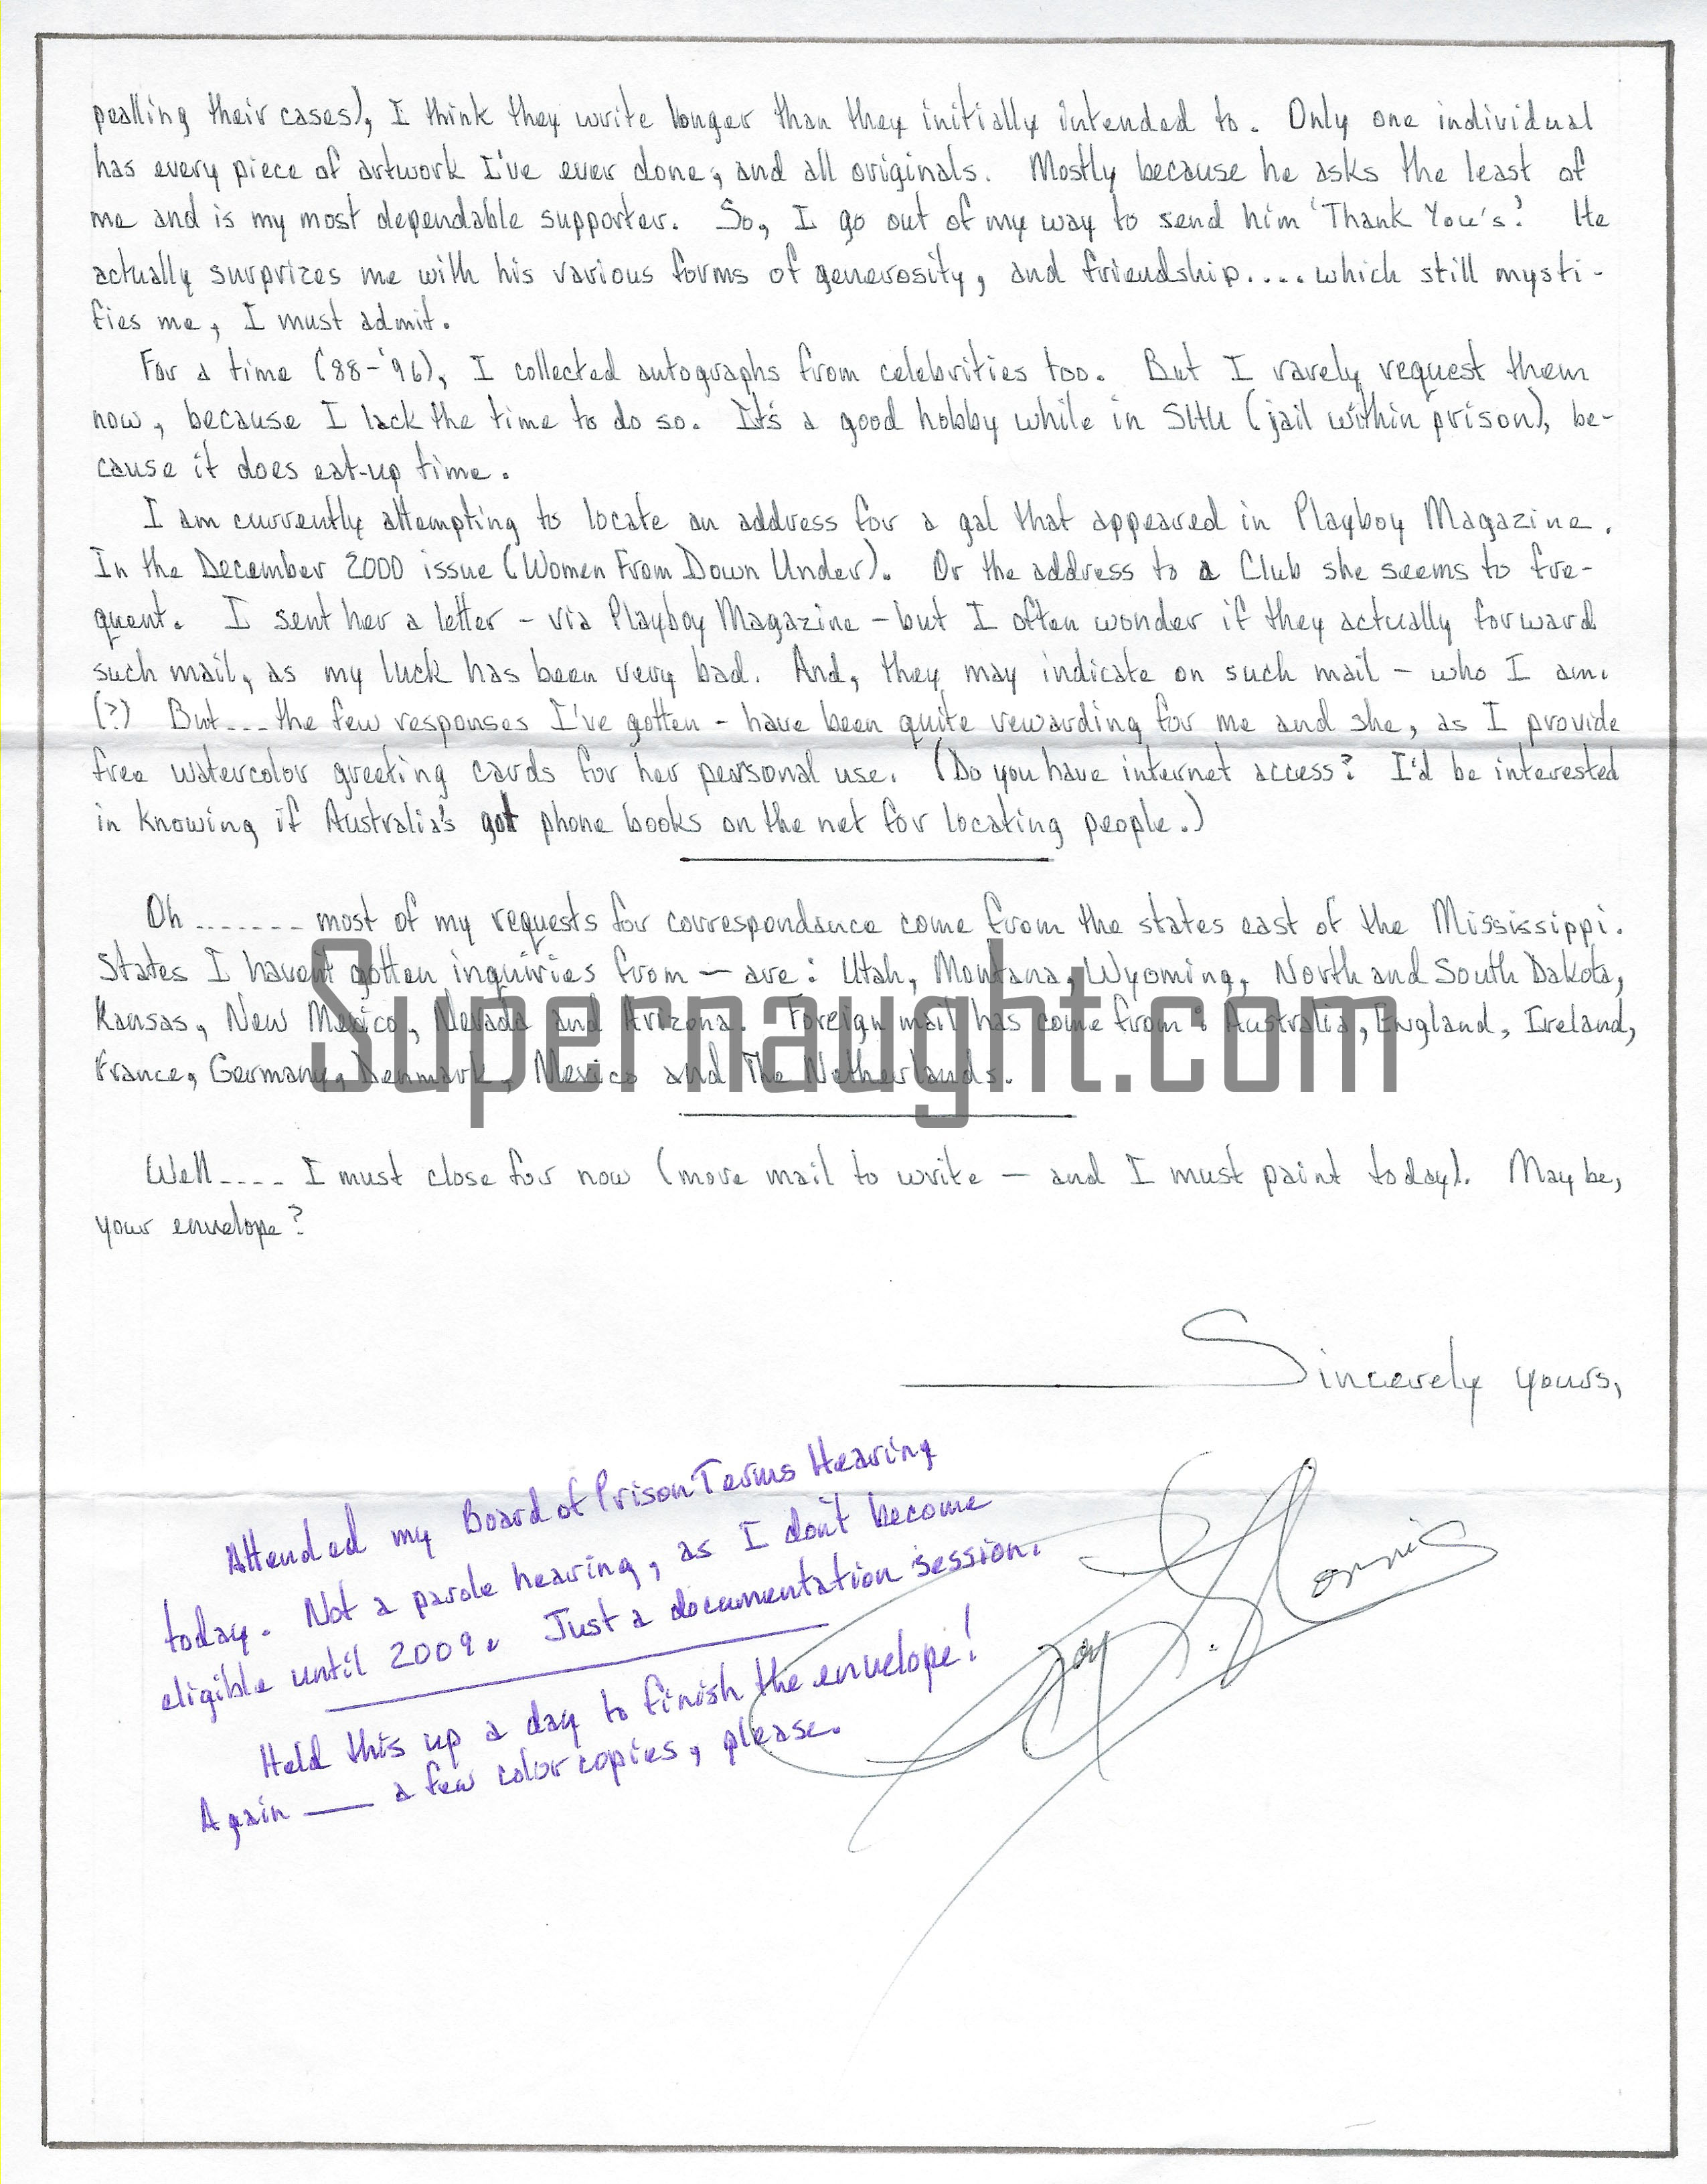 pealling their cases), I think they write longer than they initially intended to. Only one individual
has every piece of artwork I've ever done, and all originals. Mostly because he asks the least of
me and is my most dependable supporter. So, I go out of my way to send him 'Thank You's'. He
actually surprizes me with his various forms of generosity, and friendship.... which still mysti-
fies me, I must admit.
For a time (88-'96), I collected autographs from celebrities too. But I rarely request them
now, because I lack the time to do so. It's a good hobby while in SHU (jail within prison), be-
cause it does eat-up time.
I am currently attempting to locate an address for a gal that appeared in Playboy Magazine.
In the December 2000 issue (Women From Down Under). Or the address to a Club she seems to fre-
quent. I sent her a letter - via Playboy Magazine - but I often wonder if they actually forward
such mail, as my luck has been very bad. And, they may indicate on such mail - who I am.
(?) But.... the few responses I've gotten - have been quite rewarding for me and she, as I provide
free watercolor greeting cards for her personal use. (Do you have internet access? I'd be interested
in knowing if Australia's got phone books on the net for locating people.)
Oh ....... most of my requests for correspondance come from the states east of the Mississippi.
States I havent gotten inquiries from - are: Utah, Montana, Wyoming, North and South Dakota,
Kansas, New Mexico, Nevada and Arizona. Foreign mail has come from: Australia, England, Ireland,
France, Germany, Denmark, Mexico and The Netherlands.
Supernaught.com
Well.... I must close for now (more mail to write - and I must paint today). May be,
your envelope?
Sincerely yours,
Attended my Board of Prison Terms Hearing
today. Not a parole hearing, as I don't become
eligible until 2009. Just a documentation session.
Held this up a day to finish the envelope!
Again — a few color copies, please.